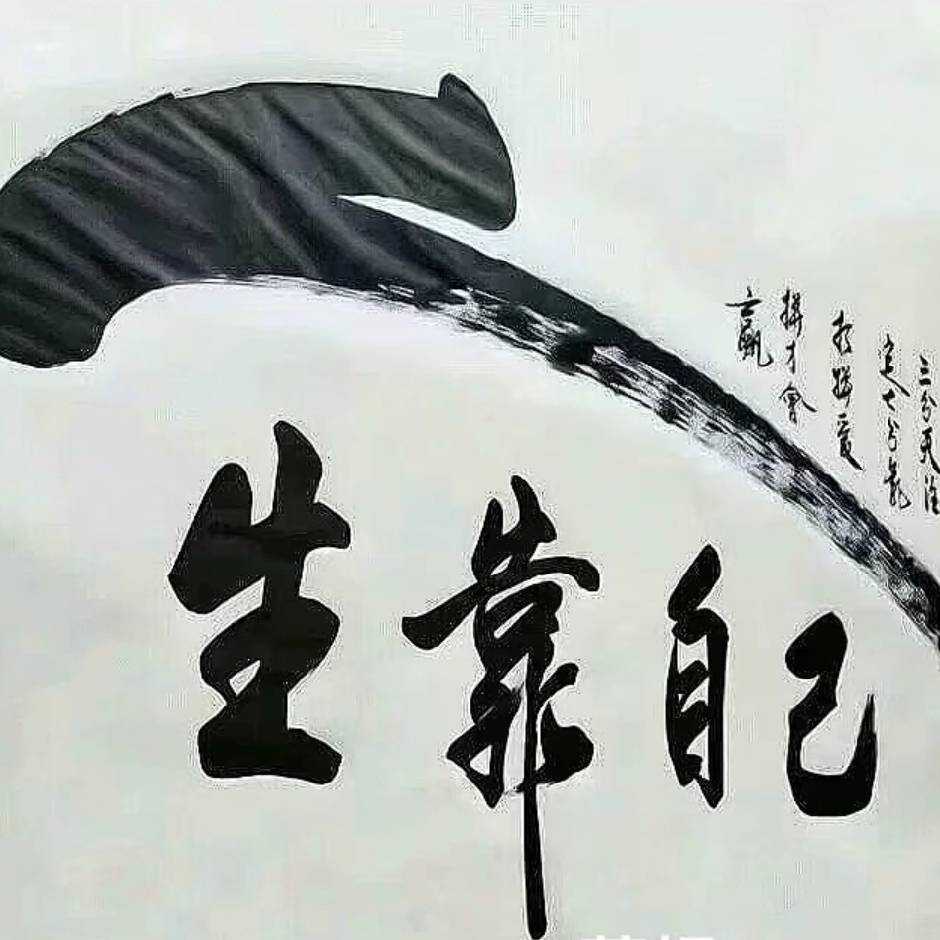 人生靠自己
三分天注
定七分靠
打拼爱
拼才會
贏